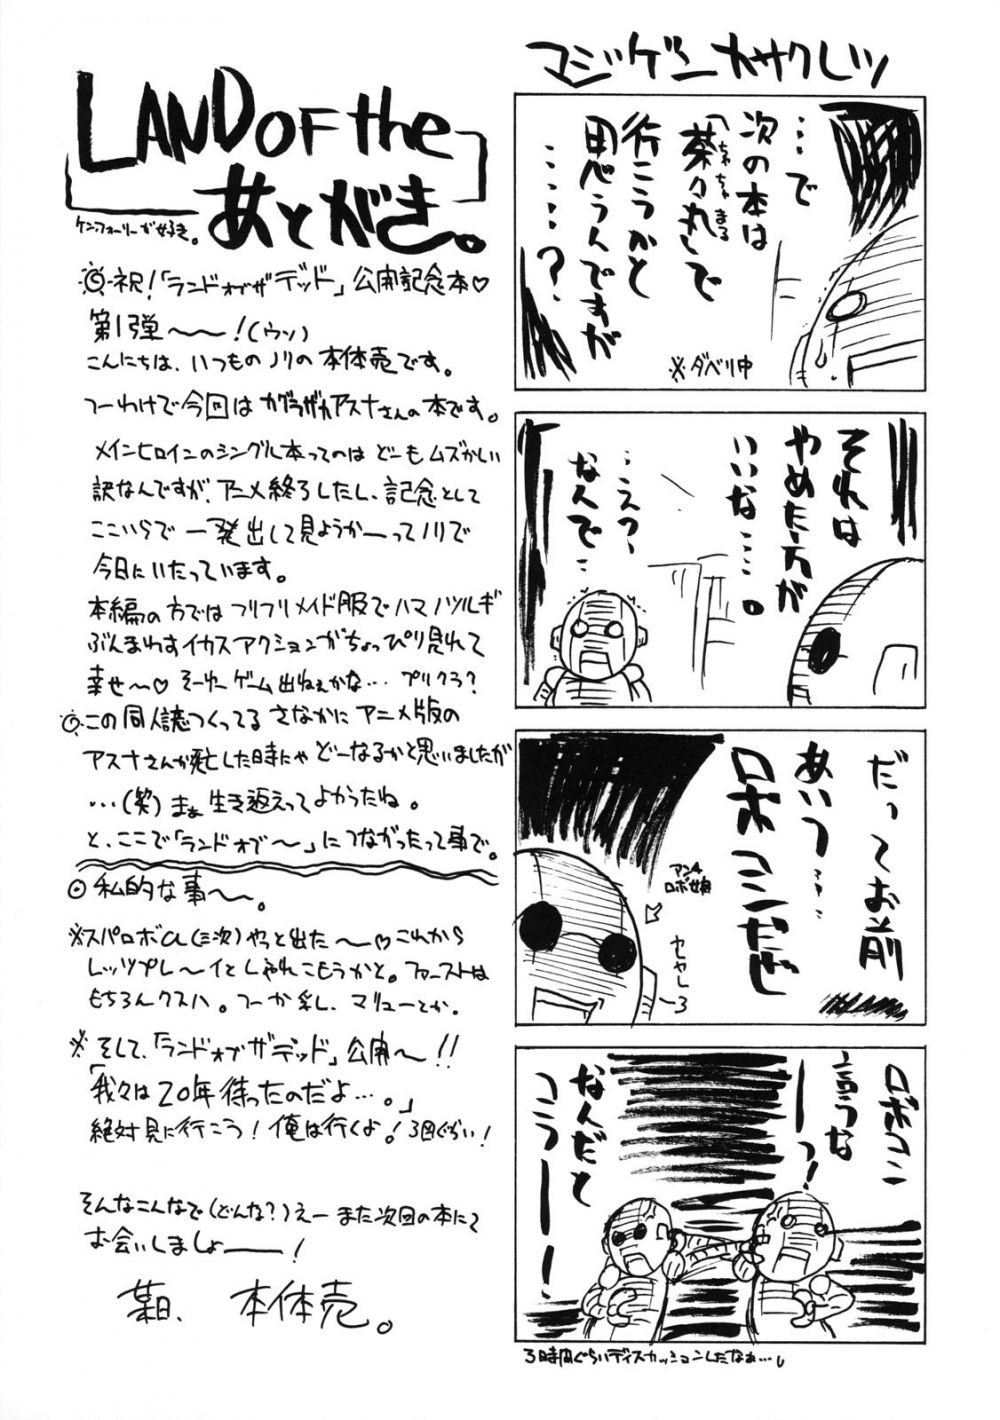 LAND OF the
あとがき。
ケン・フォーリーが好き。
◎祝！「ランドオブザデッド」公開記念本♡
第1弾〜〜！(ウソ)
こんにちは、いつものノリの本体売です。
つーわけで今回はカグラザカアスナさんの本です。
メインヒロインのシングル本ってのはどーもムズかしい
訳なんですが、アニメ終了したし、記念として
ここいらで一発出して見ようかーってノリで
今日にいたっています。
本編の方ではフリフリメイド服でハマノツルギ
ぶんまわすイカスアクションがちょっぴり見れて
幸せ〜♡ そーゆーゲーム出ねぇかな… プリクラ？
◎この同人誌つくってるさなかにアニメ版の
アスナさんが死亡した時にゃどーなるかと思いましたが
…(笑)まぁ生き返えってよかったね。
と、ここで「ランドオブ〜」につながったって事で。
◎私的な事〜。
※スパロボα(三次)やっと出た〜♡これから
レッツプレ〜イとしゃれこもうかと。ファーストは
もちろんクスハ。つーか乳し、マリューとか。
※そして、「ランドオブザデッド」公開〜!!
「我々は20年待ったのだよ…。」
絶対見に行こう！俺は行くよ！3回ぐらい！
そんなこんなで(どんな？)えーまた次回の本にて
お会いしましょーー！
某日、本体売。
マジゲンカサクレツ
…で
次の本は
「茶々丸」で
ちゃちゃまる
行こうかと
思うんですが
……？
※ダベリ中
それは
やめた方が
いいな…。
…えっ
なんで…
だってお前
あいつ…
ロボコンだぜ
アンチ
ロボ娘
ヤしゃし〜3
ロボコン
言うな
ーっ！
なんだと
コラーー！
3時間ぐらいディスカッションしたなぁ…。